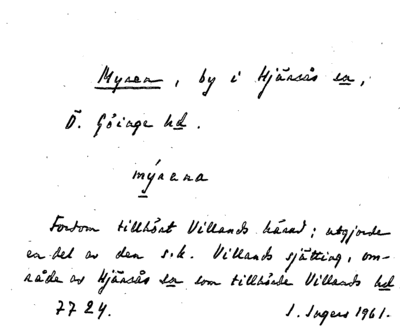 Myren, by i Hjärsås sn,
Ö. Göinge hd.
mýrena
Fordom tillhört Villands härad; utgjorde
en del av den s.k. Villands sjätting, om-
råde av Hjärsås sn som tillhörde Villands hd
7724. I. Ingers 1961.